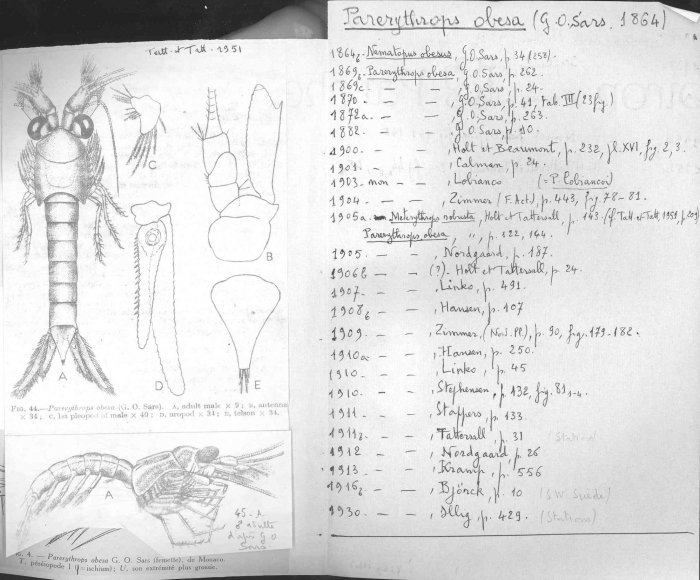 Tatt. et Tatt. 1951
A
B
C
D
E
FIG. 44.—Parerythrops obesa (G. O. Sars). A, adult male × 9; B, antenna
× 34; C, 1st pleopod of male × 40; D, uropod × 34; E, telson × 34.
A
45-A.
♂ adulte
d'après G O
Sars.
4. — Parerythrops obesa G. O. Sars (femelle), de Monaco.
T, péréiopode I (i = ischium); U, son extrémité plus grossie.
Parerythrops obesa (G.O.Sars. 1864)
1864b- Nematopus obesus, G.O.Sars, p. 34 (258).
1869b- Parerythrops obesa G.O.Sars, p. 262.
1869c — — , G.O.Sars, p. 24.
1870 - — — , G.O.Sars, p. 41, Tab. III (23 fig.)
1872a. — — , G.O.Sars, p. 263.
1882. — — G.O.Sars, p. 10.
1900. — — , Holt et Beaumont, p. 232, pl. XVI, fig. 2, 3.
1901 - — — , Calman, p. 24.
1903 - non — — , Lobianco (= P. lobiancoi)
1904 - — — , Zimmer (F. Arct), p. 443, fig. 78-81.
1905a. — Meterythrops robusta, Holt et Tattersall, p. 143 (cf Tatt. et Tatt, 1951, p. 209)
Parerythrops obesa, " , p. 122, 144.
1905 - — — , Nordgaard, p. 187.
1906b - — — (?)- Holt et Tattersall, p. 24.
1907- — — , Linko, p. 491.
1908b — — , Hansen, p. 107
1909. — — , Zimmer, (Nord. Pl.), p. 90, fig. 179-182.
1910a — — , Hansen, p. 250.
1910. — — , Linko, p. 45
1910. — — , Stephensen, p. 132, fig. 81 1-4.
1911 — — , Stappers, p. 133.
1911 — — , Tattersall, p. 31 (Station)
1912 — — , Nordgaard, p. 26
1913 — — , Kramp, p. 556
1916b — — , Björck, p. 10 (S.W. Suède)
1930 — — , Illig, p. 429. (Stations)